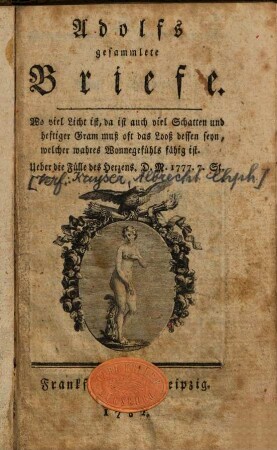 Adolfs
gesammlete
Briefe.
Wo viel Licht ist, da ist auch viel Schatten und
heftiger Gram muß oft das Looß dessen seyn,
welcher wahres Wonnegefühls fähig ist.
Ueber die Fülle des Herzens. D. M. 1777. 7. St.
[Verf: Kayser, Albrecht Chph]
Frankf eipzig.